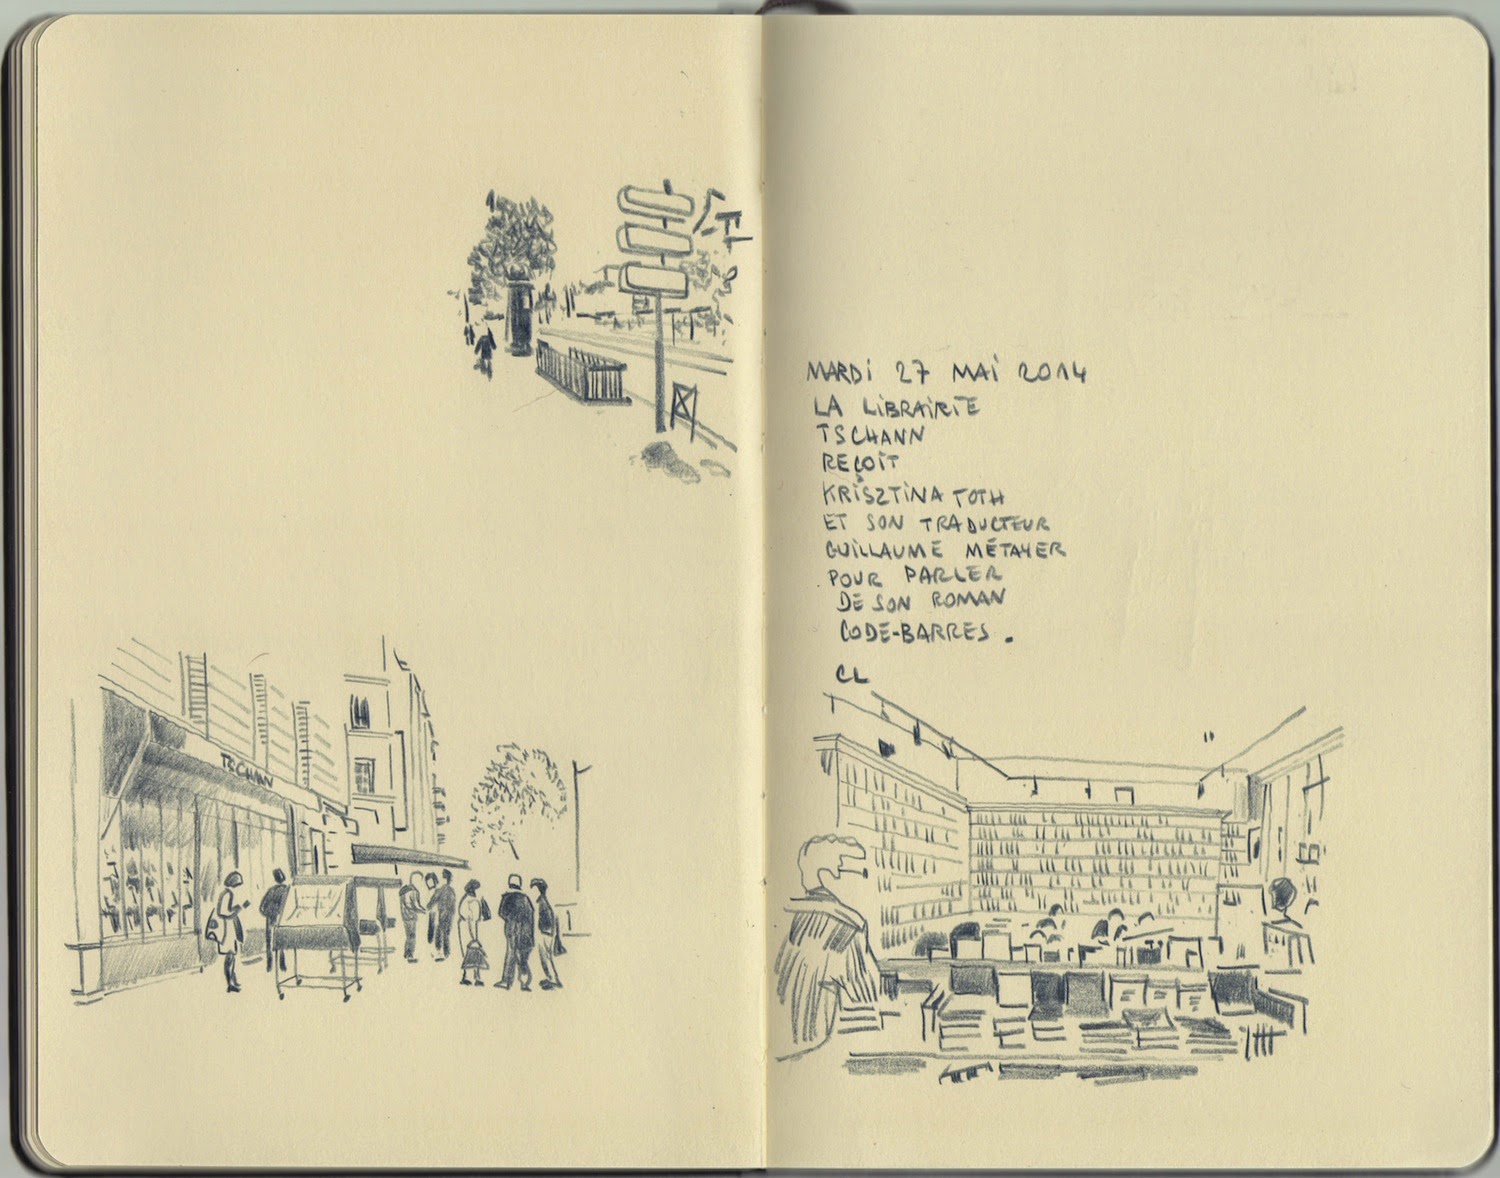 MARDI 27 MAI 2014
LA LIBRAIRIE
TSCHANN
REÇOIT
KRISZTINA TOTH
ET SON TRADUCTEUR
GUILLAUME MÉTAYER
POUR PARLER
DE SON ROMAN
CODE-BARRES.
CL
TSCHANN